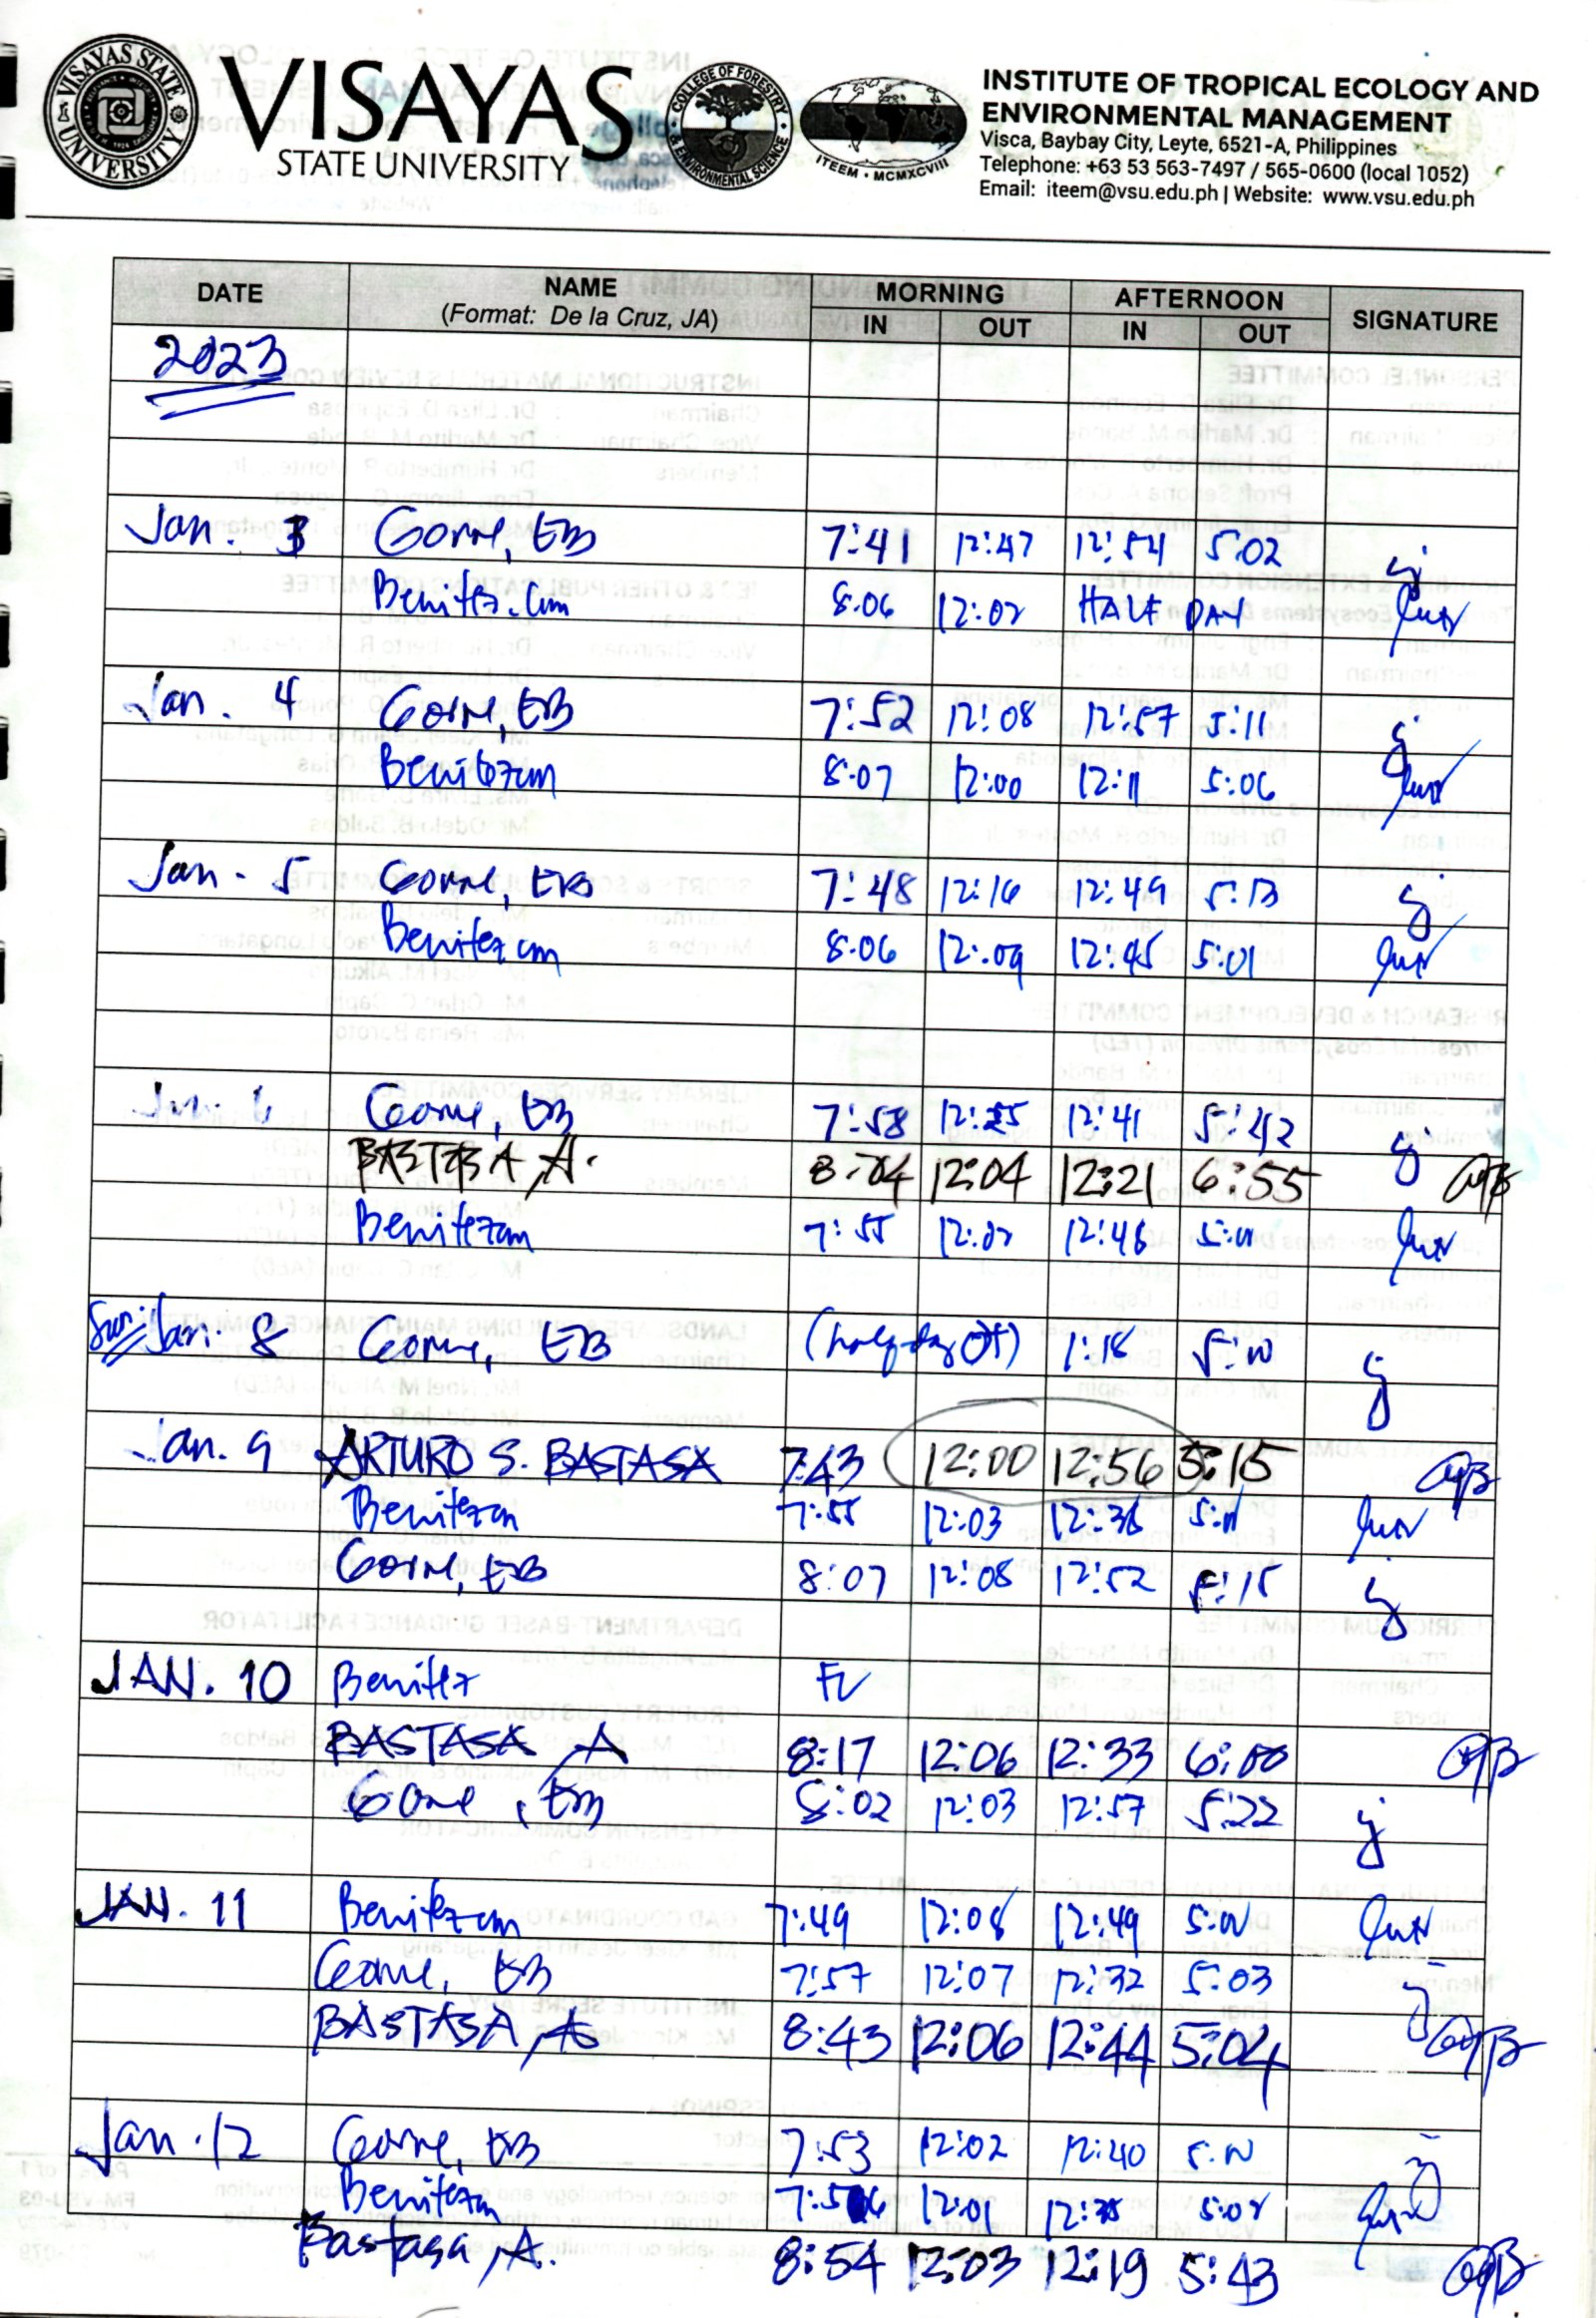 VISAYAS
STATE UNIVERSITY
VISAYAS STATE UNIVERSITY
COLLEGE OF FORESTRY & ENVIRONMENTAL SCIENCE
ITEEM • MCMXCVIII
INSTITUTE OF TROPICAL ECOLOGY AND
ENVIRONMENTAL MANAGEMENT
Visca, Baybay City, Leyte, 6521-A, Philippines
Telephone: +63 53 563-7497 / 565-0600 (local 1052)
Email: iteem@vsu.edu.ph | Website: www.vsu.edu.ph
DATE NAME MORNING AFTERNOON SIGNATURE
(Format: De la Cruz, JA) IN OUT IN OUT
2023
Jan. 3 Gorne, EB 7:41 12:47 12:54 5:02
Benitez.cm 8:06 12:02 HALF DAY
Jan. 4 Gorne, EB 7:52 12:08 12:57 5:11
Benitezcm 8:07 12:00 12:11 5:06
Jan - 5 Gorne, EB 7:48 12:16 12:49 5:13
Benitezcm 8:06 12:09 12:45 5:01
Jan. 6 Gorne, EB 7:58 12:25 12:41 5:42
BASTASA A. 8:04 12:04 12:21 6:55
Benitezcm 7:55 12:02 12:46 5:11
Sun/Jan. 8 Gorne, EB (half-day OT) 1:18 5:10
Jan. 9 ARTURO S. BASTASA 7:43 12:00 12:56 5:15
Benitezcm 7:55 12:03 12:36 5:11
Gorne, EB 8:07 12:08 12:52 5:15
JAN. 10 Benitez FL
BASTASA, A 8:17 12:06 12:33 6:00
Gorne, EB 8:02 12:03 12:57 5:22
JAN. 11 Benitezcm 7:49 12:08 12:49 5:10
Gorne, EB 7:57 12:07 12:32 5:03
BASTASA, A 8:43 12:06 12:44 5:04
Jan. 12 Gorne, EB 7:53 12:02 12:40 5:10
Benitezcm 12:01 5:02
Bastasa, A. 8:54 12:03 12:19 5:43